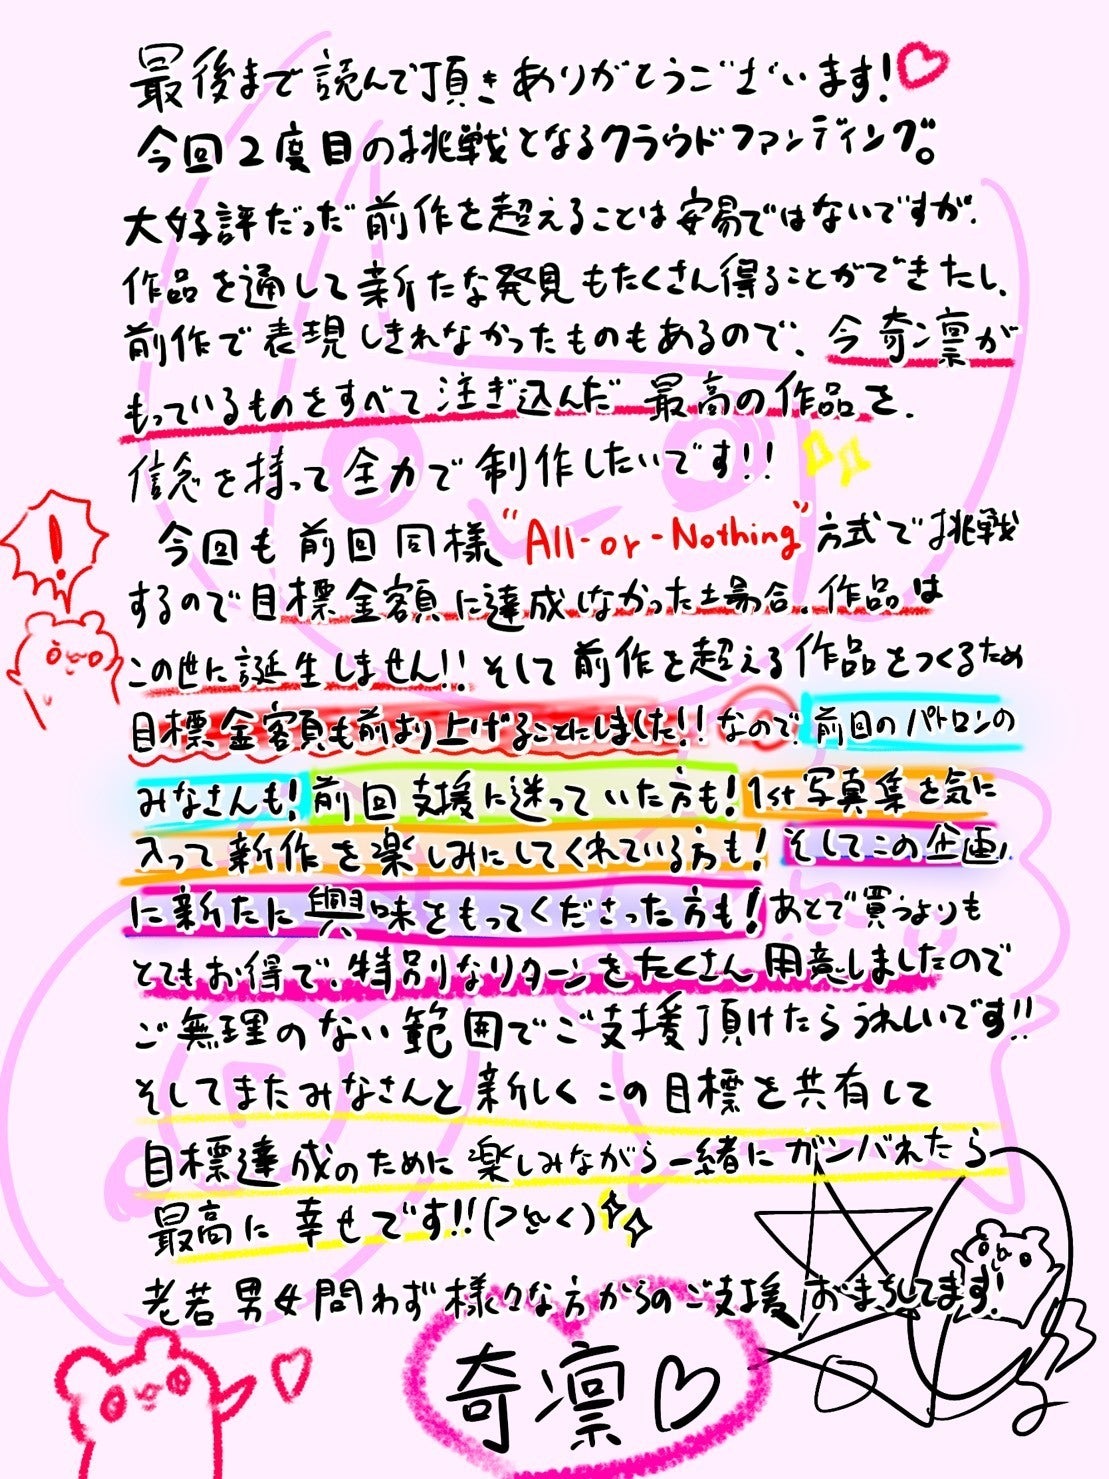 最後まで読んで頂きありがとうございます!♡
今回2度目の挑戦となるクラウドファンディング。
大好評だっだ前作を超えることは安易ではないですが、
作品を通して新たな発見もたくさん得ることができたし、
前作で表現しきれなかったものもあるので、今奇凛が
もっているものをすべて注ぎ込んだ最高の作品を、
信念を持って全力で制作したいです!!
今回も前回同様"All-or-Nothing"方式で挑戦
するので目標金額に達成しなかった場合、作品は
この世に誕生しません!!そして前作を超える作品をつくるため
目標金額も前より上げることにしました!!なので、前回のパトロンの
みなさんも!前回支援に迷っていた方も!1st写真集を気に
入って新作を楽しみにしてくれている方も!そしてこの企画
に新たに興味をもってくださった方も!あとで買うよりも
とてもお得で、特別なリターンをたくさん用意しましたので
ご無理のない範囲でご支援頂けたらうれしいです!!
そしてまたみなさんと新しくこの目標を共有して
目標達成のために楽しみながら一緒にガンバれたら
最高に幸せです!!
老若男女問わず様々な方からのご支援おまちしてます!
奇凛♡